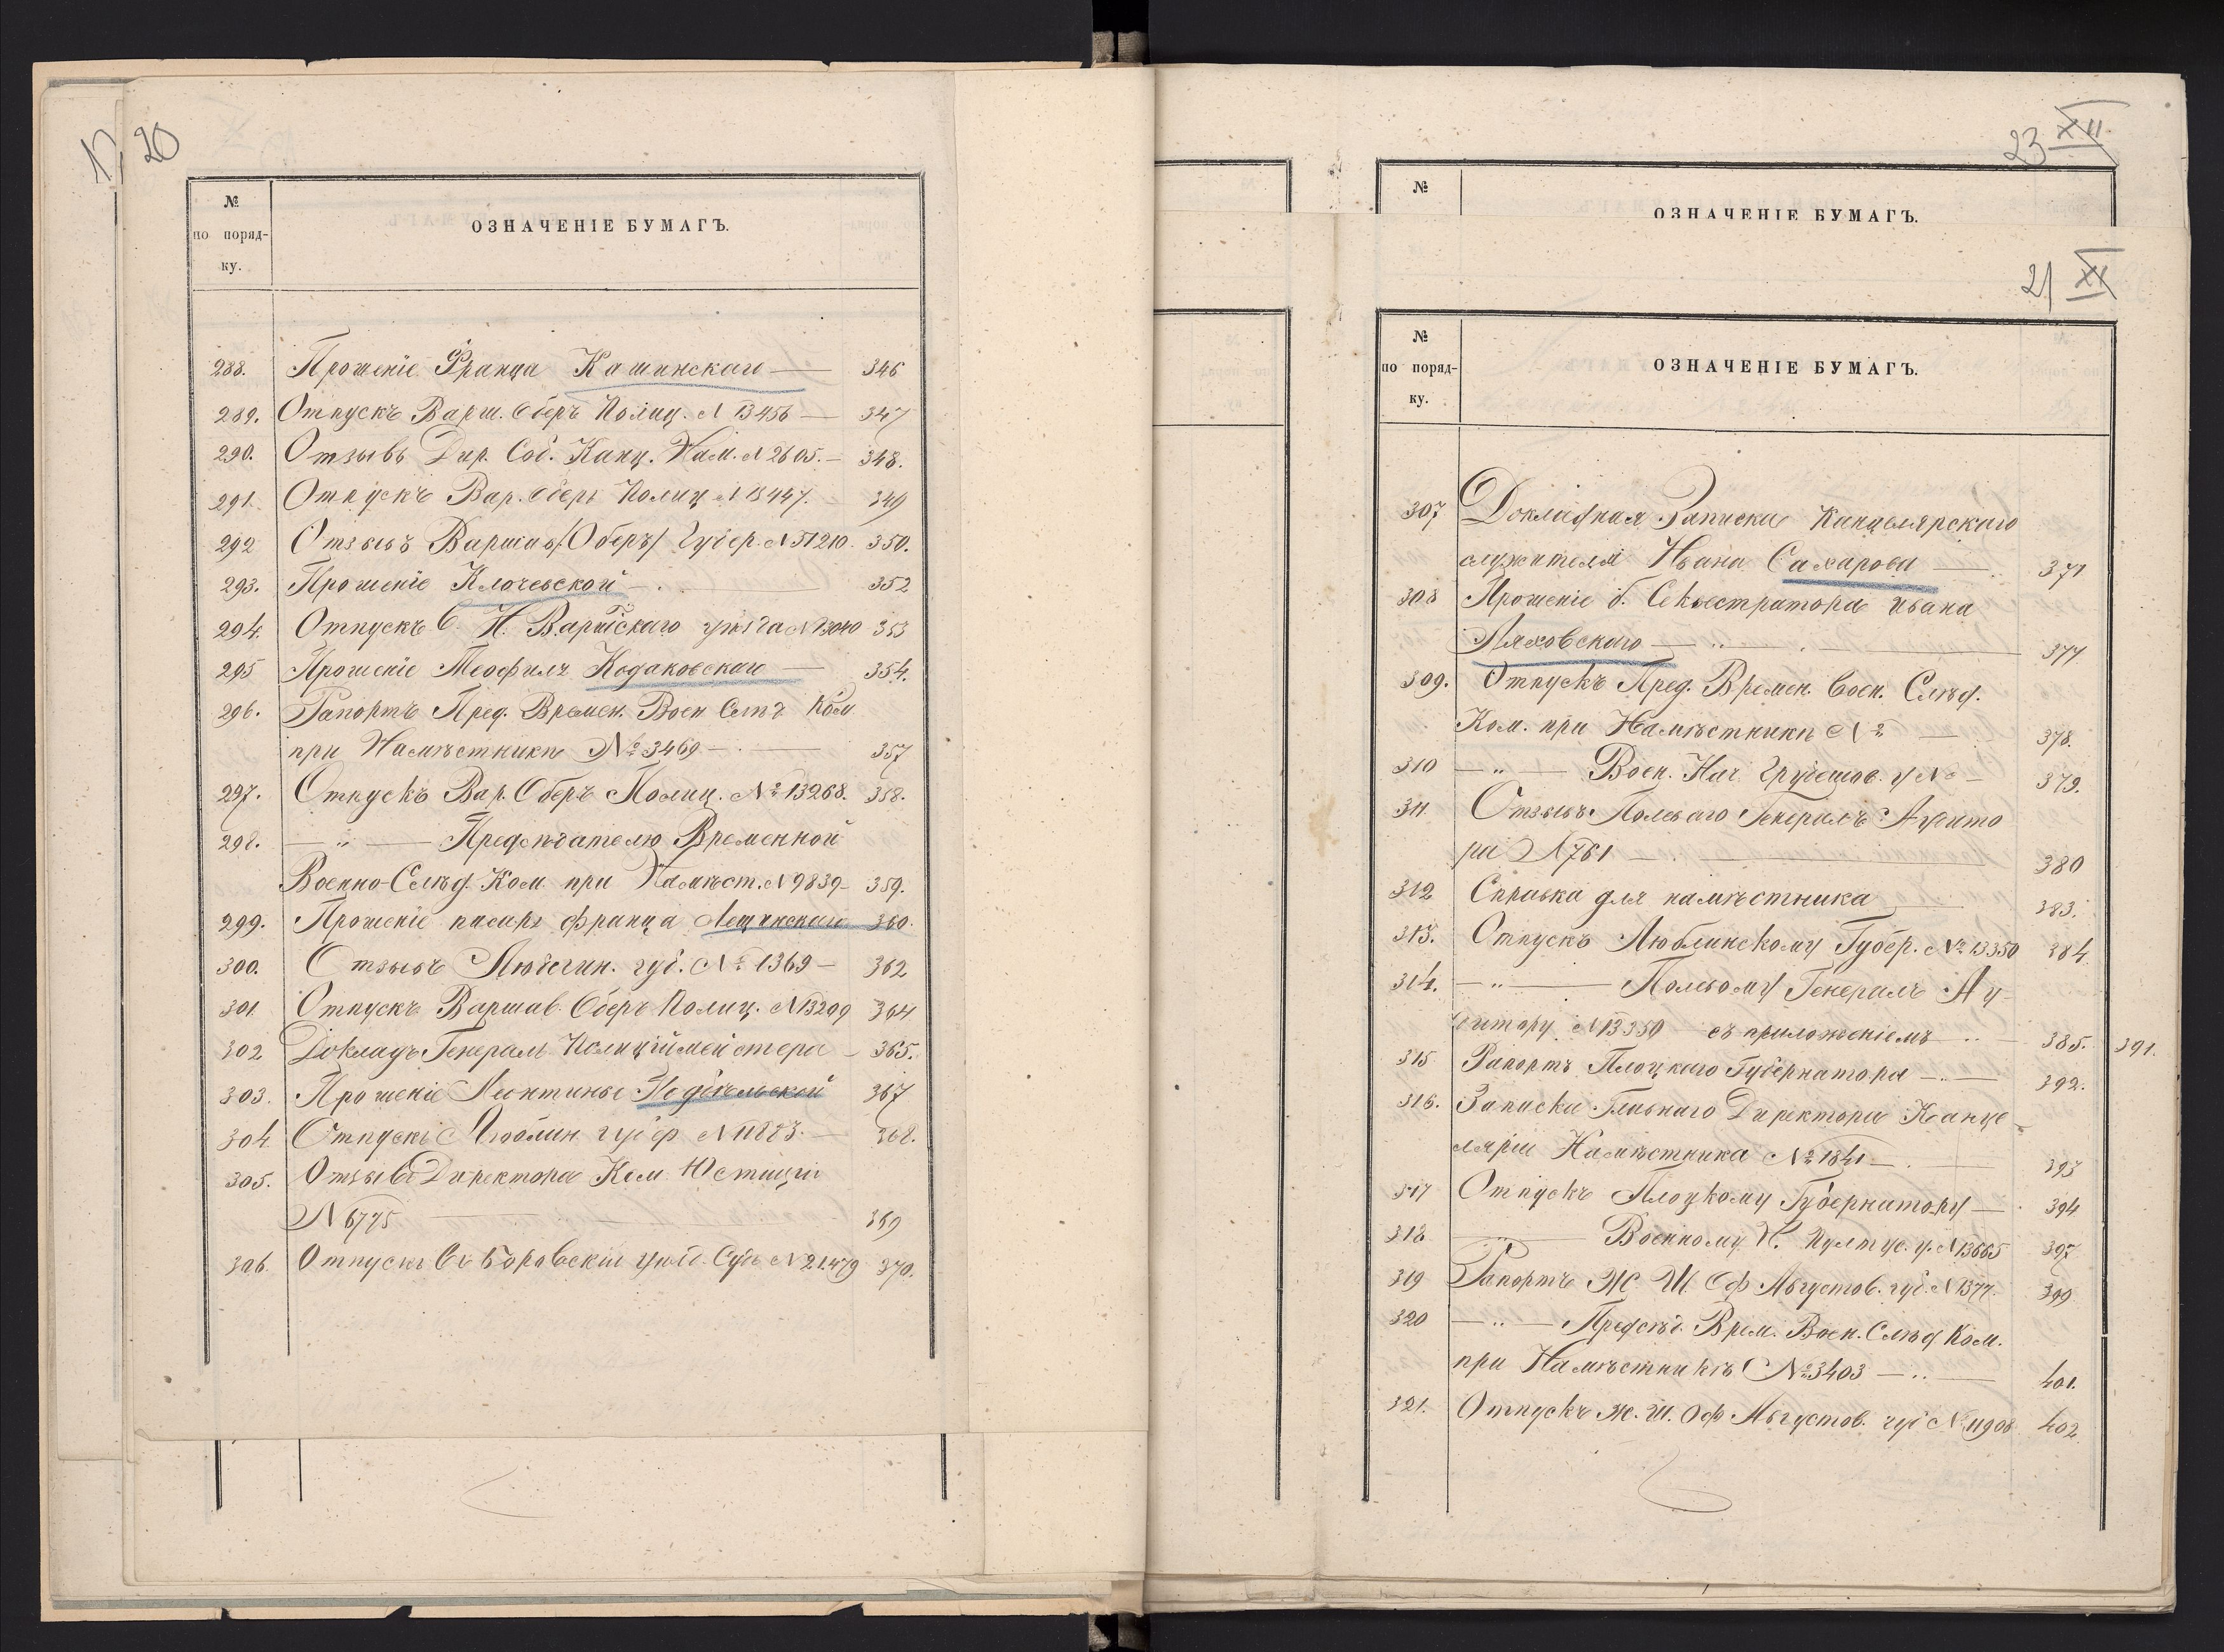 17
20
№
по поряд-
ку.
ОЗНАЧЕНІЕ БУМАГЪ.
288. Прошеніе Франца Кашинскаго — 346
289. Отпускъ Варш. Оберъ Полиц. N 13456 — 347
290. Отзывъ Дир. Соб. Канц. Нам. N 2605. — 348.
291. Отпускъ Вар. Оберъ Полиц N 13447. 349
292 Отзывъ Варшав. /Оберъ/ Губер. N 51210. 350.
293. Прошеніе Клочевской — 352
294. Отпускъ В. Н. Варшскаго уѣзда N 13040 353
295 Прошеніе Теофилъ Кодаковскаго — 354.
296. Рапортъ Пред. Времен. Воен Слѣд Ком
при Намѣстникѣ № 3469 — 357
297. Отпускъ Вар. Оберъ Полиц. № 13268. 358.
298. — „ — Предсѣдателю Временной
Военно-Слѣд. Ком при Намѣст. N 9839 — 359.
299. Прошеніе писаря Франца Лещинскаго 360.
300. Отзывъ Люблин. губ. № 1369 — 362
301 Отпускъ Варшав. Оберъ Полиц. N 13299 364
302 Докладъ Генералъ Полиціймейстера — 365.
303. Прошеніе Леонтины 367
304. Отпускъ Люблин губер N 11883. — 368.
305. Отзывъ Директора Ком Юстиціи
N 6775 — 369
306. Отпускъ въ уѣзд. Судъ N 21479 370.
23 XII
№
ОЗНАЧЕНІЕ БУМАГЪ.
21 XI
№
по поряд-
ку.
ОЗНАЧЕНІЕ БУМАГЪ.
307 Докладная Записка Канцелярскаго
служителя Ивана Сахарова — 371
308 Прошеніе б. Секвестратора Ивана
Ляховскаго — „ — 377
309. Отпускъ Пред. Времен. Воен. Слѣд.
Ком. при Намѣстникѣ № — 378.
310 — „ — Воен. Нач. Грубешов. у № — 379.
311. Отзывъ Полеваго Генералъ Аудито
ра N 761 — 380
312 Справка для намѣстника — 383.
313. Отпускъ Люблинскому Губер. № 13350 384
314. — „ — Полевому Генералъ Ау-
дитору N 13350 съ приложеніемъ „ — 385. 391.
315 Рапортъ Плоцкаго Губернатора — 392.
316. Записка Главнаго Директора Канце-
ляріи Намѣстника № 1841 — 393
317 Отпускъ Плоцкому Губернатору — 394
318 — „ — Военному Н. Пултус. у. N 13665 397
319 Рапортъ Ж. Ш. Оф Августов. губ. N 1377. 399
320 — „ — Предсѣд. Врем. Воен. Слѣд Ком.
при Намѣстникѣ № 3403 — „ — 401.
321. Отпускъ Ж. Ш. Оф Августов. губ N 11908 402